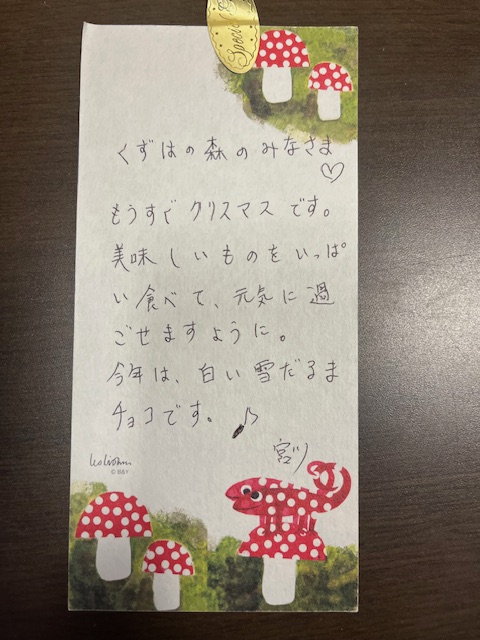 Speci
くずはの森のみなさま
♡
もうすぐ クリスマス です。
美味しいものをいっぱ
い食べて、元気に過
ごせますように。
今年は、白い雪だるま
チョコです。♪
宮ツ
Leo Lionni
© B&Y